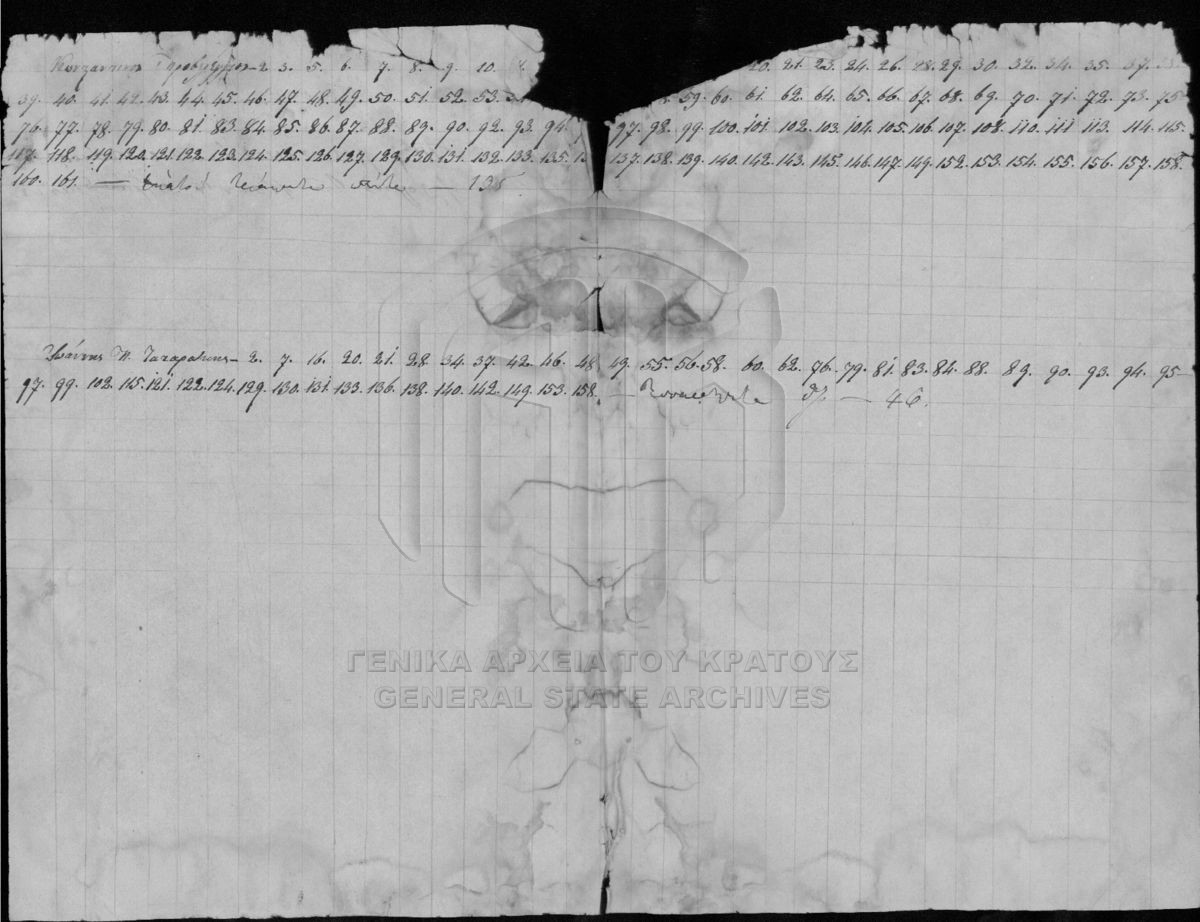 2. 3. 5. 6. 7. 8. 9. 10. 20. 21. 23. 24. 26. 28. 29. 30. 32. 34. 35. 37.
39. 40. 41. 42. 43. 44. 45. 46. 47. 48. 49. 50. 51. 52. 53. 59. 60. 61. 62. 64. 65. 66. 67. 68. 69. 70. 71. 72. 73. 75
76. 77. 78. 79. 80. 81. 83. 84. 85. 86. 87. 88. 89. 90. 92. 93. 94. 97. 98. 99. 100. 101. 102. 103. 104. 105. 106. 107. 108. 110. 111. 113. 114. 115.
117. 118. 119. 120. 121. 122. 123. 124. 125. 126. 127. 129. 130. 131. 132. 133. 135. 137. 138. 139. 140. 142. 143. 145. 146. 147. 149. 152. 153. 154. 155. 156. 157. 158.
160. 161. — εκατόν τριάκοντα πέντε — 135
Ιωάννης Π. — 2. 7. 16. 20. 21. 28. 34. 37. 42. 46. 48. 49. 55. 56. 58. 60. 62. 76. 79. 81. 83. 84. 88. 89. 90. 93. 94. 95—
97. 99. 102. 115. 121. 122. 124. 129. 130. 131. 133. 136. 138. 140. 142. 149. 153. 158. — — 46.
ΓΕΝΙΚΑ ΑΡΧΕΙΑ ΤΟΥ ΚΡΑΤΟΥΣ
GENERAL STATE ARCHIVES